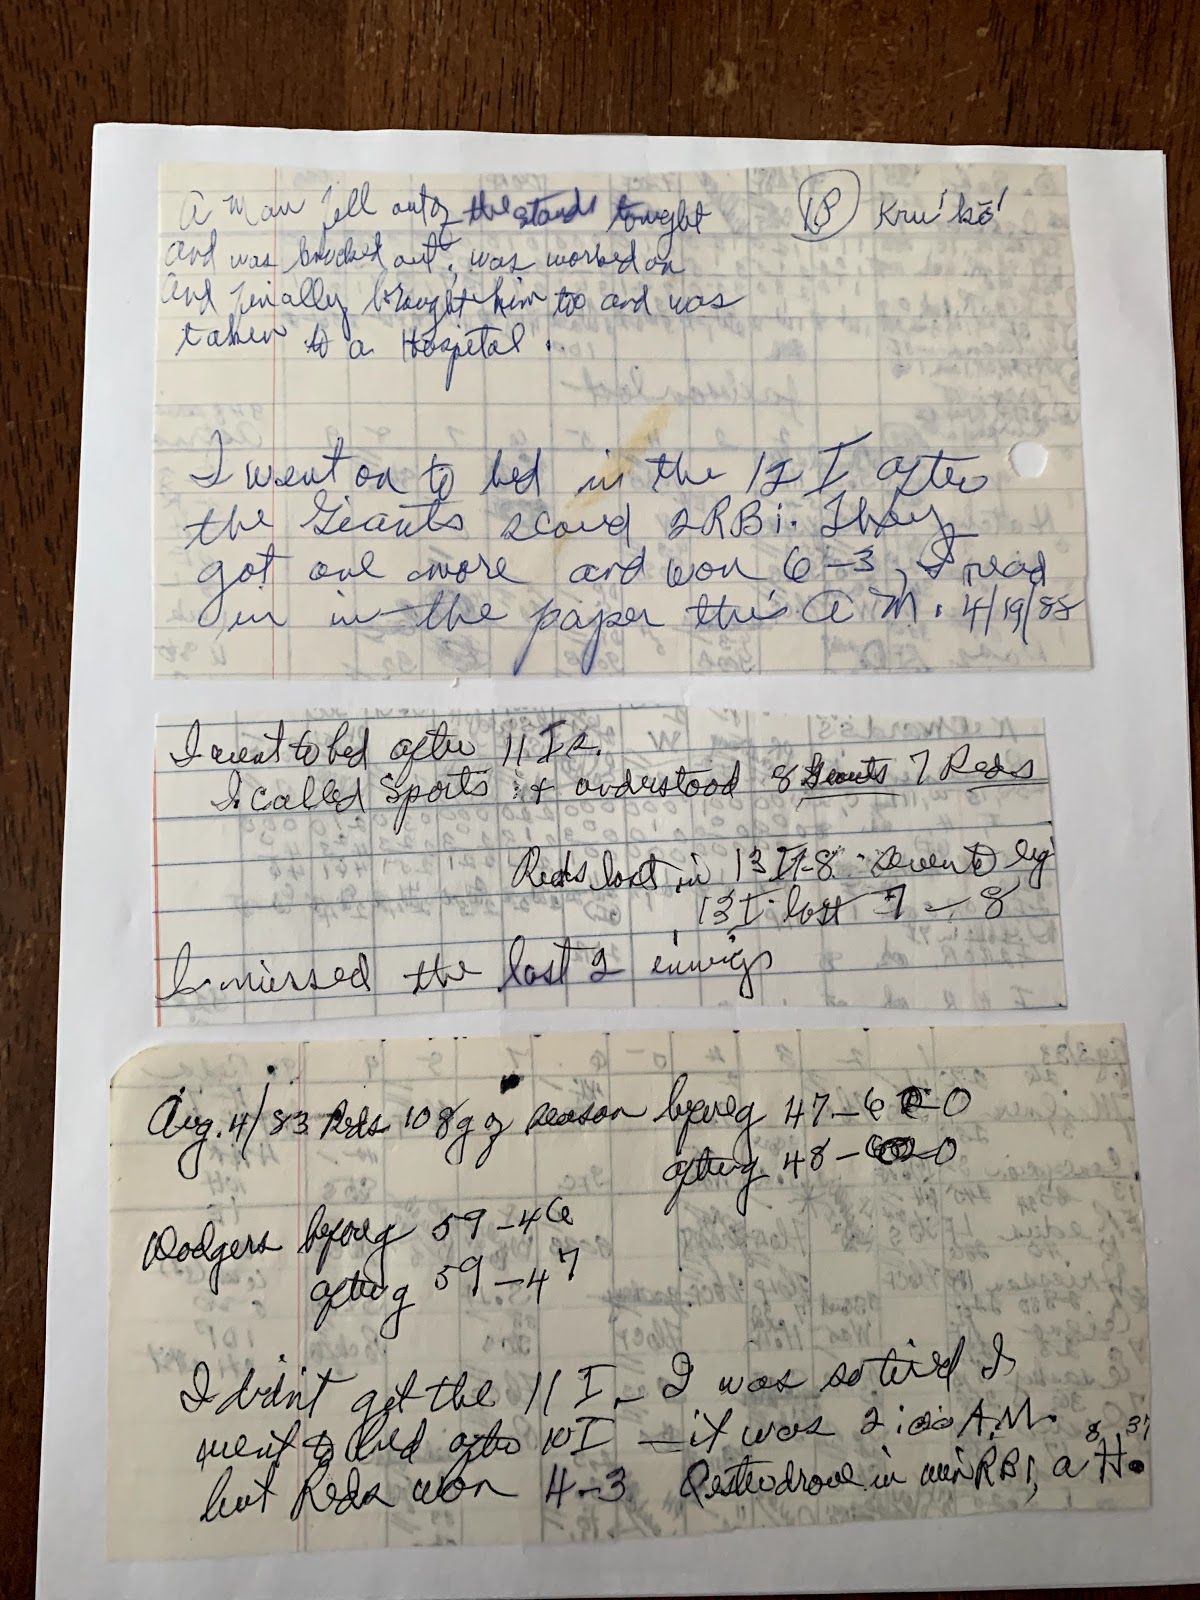 A Man fell out of the stands tonight
18 Kru' kō'
and was knocked out, was worked on
and finally brought him to and was
taken to a Hospital.
I went on to bed in the 12 I after
the Giants scored 2RBi. They
got one more and won 6-3, I read
in in the paper this A M. 4/19/88
I went to bed after 11 Is.
I called Sports & understood 8 Giants 7 Reds
Reds lost in 13 I 7-8
13 I lost 7-8
I missed the last 2 innings
Aug. 4/83 Reds 108 g of season before g 47-60-0
after g 48-60-0
Dodgers before g 59-46
after g 59-47
I didn't get the 11 I - I was so tired I
went to bed after 10 I - it was 2:00 A.M.
but Reds won 4-3 Oester drove in win RBI, a H.